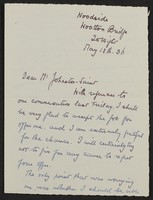 Woodside
Wootton Bridge
I. of W.
May 18th. 36
Dear Mr Johnston-Saint
With reference to
our conversation last Friday, I shall
be very glad to accept the job you
offer me, and I am extremely grateful
for the chance. I will certainly try
not to give you any cause to regret
your offer.
The only point that was worrying
me was whether I should be able